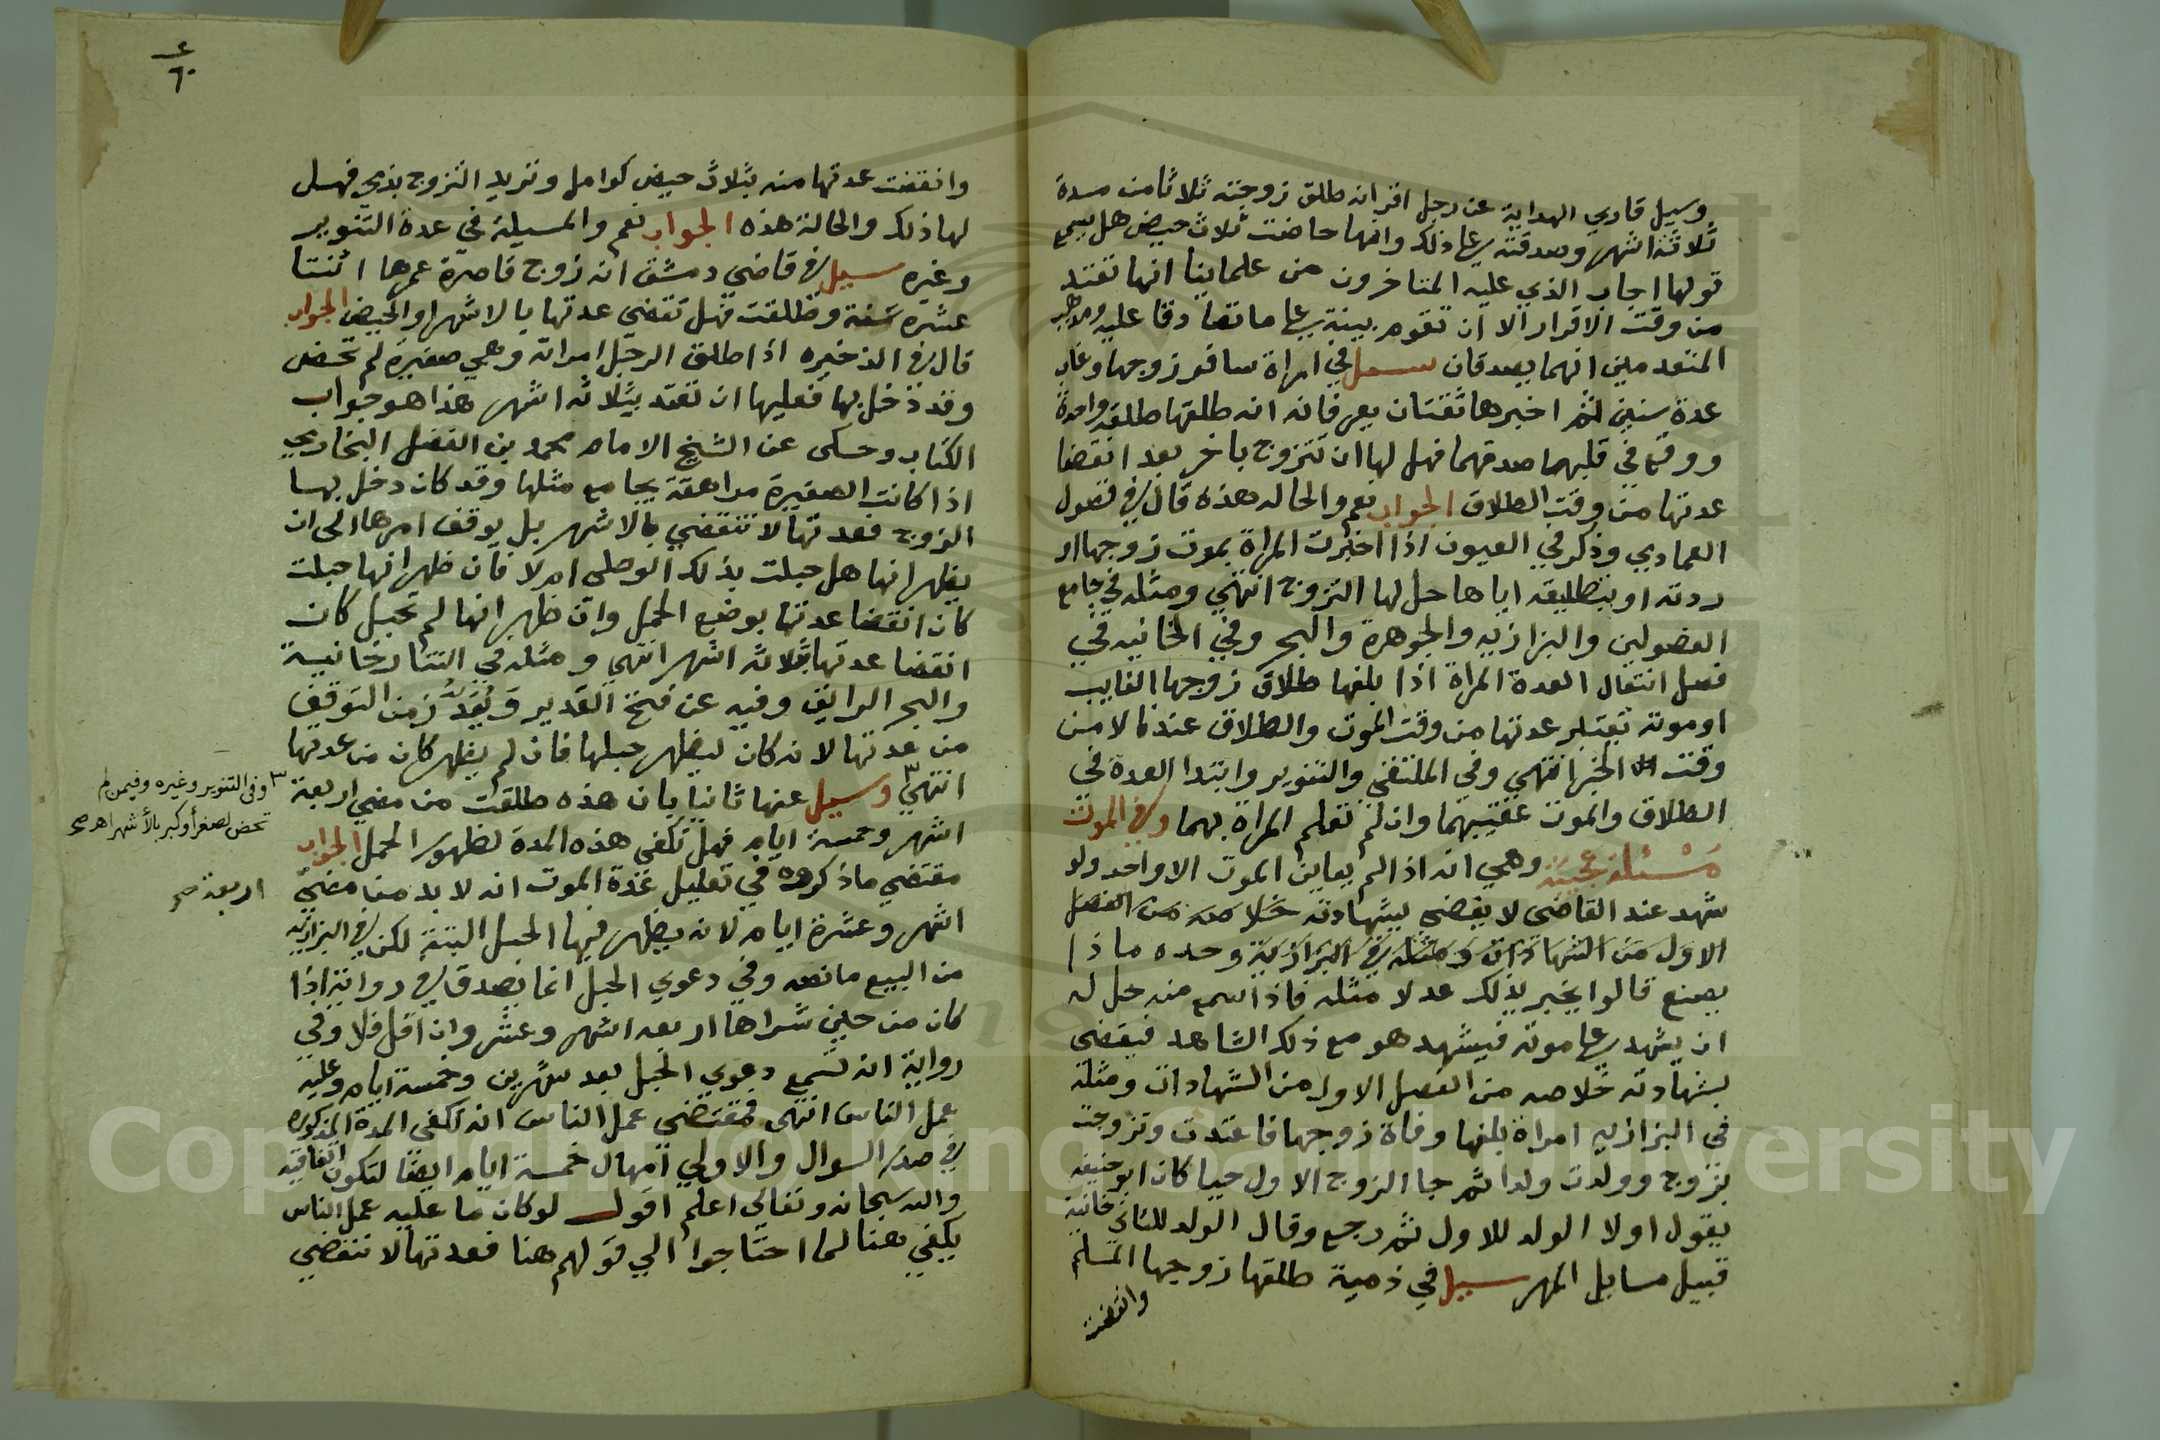 وسيل قاري الهداية عن رجل اقر انه طلق زوجته ثلاثا من مدة
ثلاثة اشهر وصدقته على ذلك وانها حاضت ثلاث حيض هل يسمع
قولها اجاب الذي عليه المتاخرون من علماينا انها تعتد
من وقت الاقرار الا ان تقوم بينة على ما تصادقا عليه
المتقدمين انهما يصدقان سيل في امراة سافر زوجها وغاب
عدة سنين ثم اخبرها ثقتان يعرفانه انه طلقها طلقة واحدة
ووقع في قلبهما صدقهما فهل لها ان تتزوج باخر بعد انقضا
عدتها من وقت الطلاق الجواب نعم والحاله هذه قال في فصول
العمادي وذكر في العيون اذا اخبرت المراة بموت زوجها او
ردته او بتطليقه اياها حل لها التزوج انتهي ومثله في جامع
الفصولين والبزازيه والجوهرة والبحر وفي الخانيه في
فصل انتقال العدة المراة اذا بلغها طلاق زوجها الغايب
او موته تعتبر عدتها من وقت الموت والطلاق عندنا لا من
وقت الخبر انتهي وفي الملتقي والتنوير وابتدا العدة في
الطلاق والموت عقيبهما وان لم تعلم المراة بهما وفي الموت
مسئلة عجيبة وهي انه اذا لم يعاين الموت الا واحد ولو
شهد عند القاضي لا يقضي بشهادته خلاصه من الفصل
الاول من الشهادات ومثله في البزازية وحده ماذا
يصنع قالوا يخبر بذلك عدلا مثله فاذا سمع منه حل له
ان يشهد على موته فيشهد هو مع ذلك الشاهد فيقضي
بشهادته خلاصه من الفصل الاول من الشهادات ومثله
في البزازيه امراة بلغها وفاة زوجها فاعتدت وتزوجت
بزوج وولدت ولدا ثم جا الزوج الاول حيا كان ابو حنيفه
يقول اولا الولد للاول ثم رجع وقال الولد للثاني خانية
قبيل مسايل المهر سيل في ذمية طلقها زوجها المسلم
وانقضت
٦٠
وانقضت عدتها منه بثلاث حيض كوامل وتريد التزوج بذمي فهل
لها ذلك والحالة هذه الجواب نعم والمسيلة في عدة التنوير
وغيره سيل في قاضي دمشق انه زوج قاصرة عمرها اثنتا
عشرة سنة وطلقت فهل تقضي عدتها بالاشهر او الحيض الجواب
قال في الذخيره اذا طلق الرجل امراته وهي صغيرة لم تحض
وقد دخل بها فعليها ان تعتد بثلاثه اشهر هذا هو جواب
الكتاب وحكى عن الشيخ الامام محمد بن الفضل البخاري
اذا كانت الصغيرة مراهقة يجامع مثلها وقد كان دخل بها
الزوج فعدتها لا تنقضي بالاشهر بل يوقف امرها الى ان
يظهر انها هل حبلت بذلك الوطي ام لا فان ظهر انها حبلت
كان انقضا عدتها بوضع الحمل وان ظهر انها لم تحبل كان
انقضا عدتها بثلاثه اشهر انتهي ومثله في التتارخانيية
والبحر الرايق وفيه عن فتح القدير ويعتد زمن التوقف
من عدتها لانه كان ليظهر حبلها فان لم يظهر كان من عدتها
انتهي ٣ وسيل عنها ثانيا بان هذه طلقت من مضي اربعة
اشهر وخمسة ايام فهل تكفي هذه المدة لظهور الحمل الجواب
مقتضي ما ذكروه في تعليل عدة الموت انه لا بد من مضي
اشهر وعشرة ايام لانه يظهر فيها الحبل البتة لكن في البزازية
من البيع ما نصه وفي دعوي الحبل انما يصدق في رواية اذا
كان من حين شراها اربعه اشهر وعشر وان اقل فلا وفي
رواية انه تسمع دعوي الحبل بعد شهرين وخمسة ايام وعليه
عمل الناس انتهي فمقتضي عمل الناس انه تكفي المدة المذكورة
في صدر السوال والاولي امهال خمسة ايام ايضا لتكون اتفاقية
والله سبحانه وتعالي اعلم اقول لو كان ما عليه عمل الناس
يكفي هنا لما احتاجوا الي قولهم هنا فعدتها لا تنقضي
٣ وفي التنوير وغيره وفيمن لم
تحض لصغر أو كبر بالأشهر اهـ صح
اربعة صح
Copyright © King Saud University